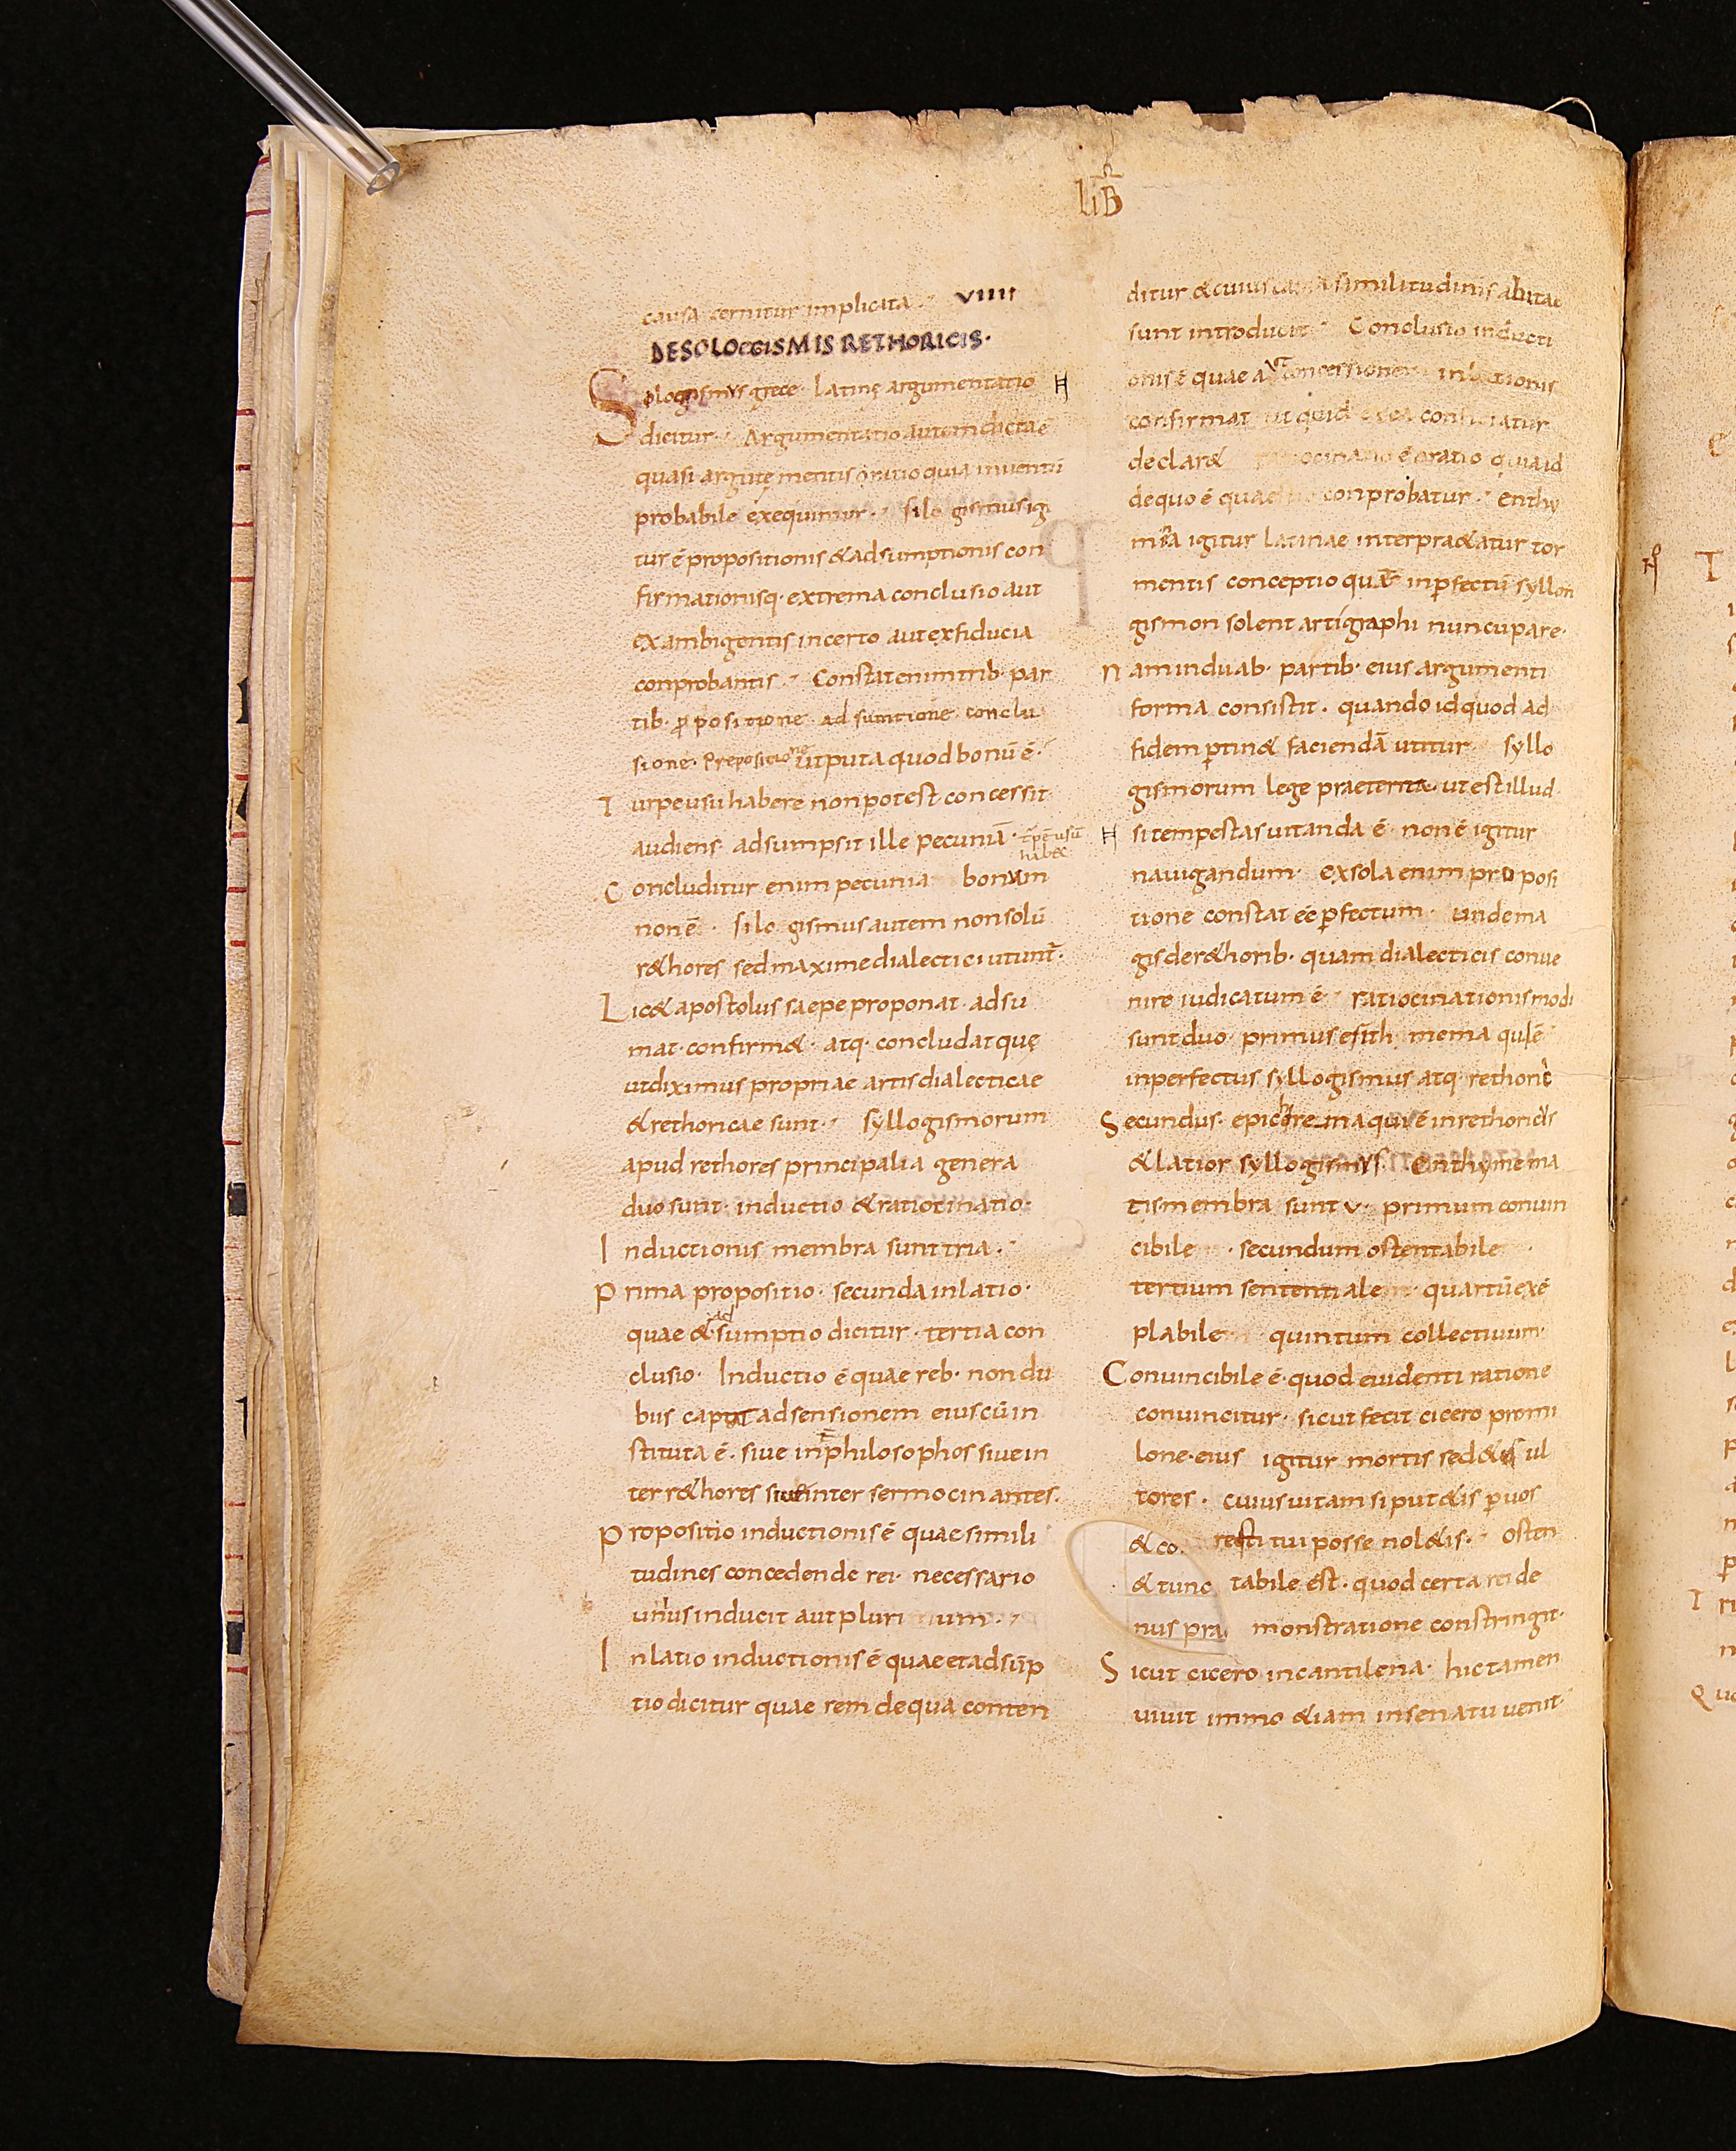 liB
causa cernitur implicita · VIIII
DESOLOGISMIS RETHORICIS·
Sologismus grece · latinę argumentatio
dicitur · Argumentatio autem dicta ē
quasi argutę mentis oratio quia inventū
probabile exequimur · silo gismus igi
tur ē propositionis & adsumptionis con
firmationisq· extrema conclusio aut
ex ambigentis incerto aut ex fiducia
conprobantis · Constat enim trib· par
tib· ꝓpositione · adsumtione · conclu
sione · Prepositione ut puta quod bonū ē·
Turpeusu habere non potest concessit·
audiens· adsumpsit ille pecuniā ·
Concluditur enim pecunia bonum
non ē · silo gismus autem non solū
r&hores sed maxime dialectici utunt̄·
Lic& apostolus saepe proponat · adsu
mat · confirm& · atq· concludat quę
ut diximus propriae artis dialecticae
& rethoricae sunt · syllogismorum
apud rethores principalia genera
duo sunt · inductio & ratiocinatio·
Inductionis membra sunt tria ·
Prima propositio · secunda inlatio·
quae & adsumptio dicitur · tertia con
clusio · Inductio ē quae reb· non du
biis captat adsensionem eius cū in
stituta ē · sive in philosophos sive in
ter r&hores sive inter sermocinantes·
Propositio inductionis ē quae simili
tudines concedende rei· necessario
unius inducit aut pluri mum ·
Inlatio inductionis ē quae et adsūp
tio dicitur quae rem de qua conten
ditur & cuius causa similitudinis abitae
sunt introducit · Conclusio inducti
onis ē quae aut concessionem inlationis
confirmat ut quid ex ea conficiatur
declar& ratiocinatio ē oratio qua id
de quo ē quaestio conprobatur · enthy
ma igitur latinae interpra&atur tor
mentis conceptio quā inꝑfectū syllon
gismon solent artigraphi nuncupare·
Nam in duab· partib· eius argumenti
forma consistit · quando id quod ad
fidem ꝑtin& faciendā utitur syllo
gismorum lege praeterita · ut est illud·
si tempestas uitanda ē · non ē igitur
nauigandum· ex sola enim proposi
tione constat eē ꝑfectum · unde ma
gis de r&horib· quam dialecticis conue
nire iudicatum ē · ratiocinationis modi
sunt duo· primus est inth mema qui ē
inperfectus syllogismus atq· rethoric
Secundus· epichirema qui ē in rethoricis
& latior syllogismus · Enthymema
tis membra sunt v· primum conuin
cibile · secundum ostentabile ·
tertium sententiale · quartū exē
plabile quintum collectiuum·
Conuincibile ē · quod euidenti ratione
conuincitur · sicut fecit cicero pro mi
lone· eius igitur mortis sed&is ul
tores · cuius uitam si put&is ꝑ uos
resti tui posse nol&is · osten
tabile est · quod certa rei de
monstratione constringit·
Sicut cicero in cantilena · hic tamen
uiuit immo &iam in senatu uenit·